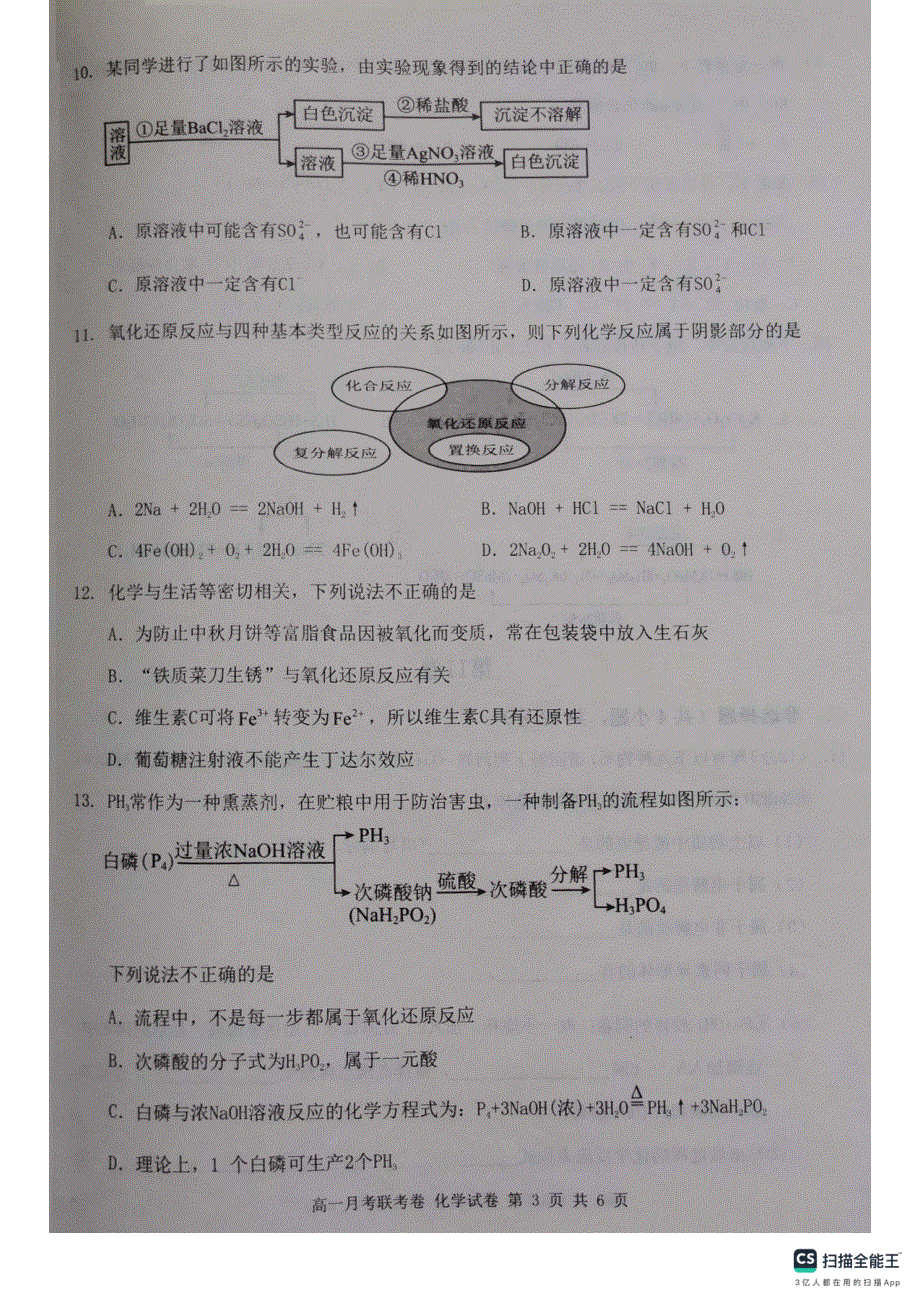 10. 某同学进行了如图所示的实验，由实验现象得到的结论中正确的是
溶液 ①足量BaCl₂溶液 白色沉淀 ②稀盐酸 沉淀不溶解
溶液 ③足量AgNO₃溶液 ④稀HNO₃ 白色沉淀
A. 原溶液中可能含有SO₄²⁻，也可能含有Cl⁻ B. 原溶液中一定含有SO₄²⁻和Cl⁻
C. 原溶液中一定含有Cl⁻ D. 原溶液中一定含有SO₄²⁻
11. 氧化还原反应与四种基本类型反应的关系如图所示，则下列化学反应属于阴影部分的是
化合反应 分解反应
氧化还原反应
复分解反应 置换反应
A. 2Na + 2H₂O == 2NaOH + H₂↑ B. NaOH + HCl == NaCl + H₂O
C. 4Fe(OH)₂ + O₂ + 2H₂O == 4Fe(OH)₃ D. 2Na₂O₂ + 2H₂O == 4NaOH + O₂↑
12. 化学与生活等密切相关，下列说法不正确的是
A. 为防止中秋月饼等富脂食品因被氧化而变质，常在包装袋中放入生石灰
B. “铁质菜刀生锈”与氧化还原反应有关
C. 维生素C可将Fe³⁺转变为Fe²⁺，所以维生素C具有还原性
D. 葡萄糖注射液不能产生丁达尔效应
13. PH₃常作为一种熏蒸剂，在贮粮中用于防治害虫，一种制备PH₃的流程如图所示：
白磷(P₄) 过量浓NaOH溶液 △ PH₃
次磷酸钠 (NaH₂PO₂) 硫酸 次磷酸 分解 PH₃
H₃PO₄
下列说法不正确的是
A. 流程中，不是每一步都属于氧化还原反应
B. 次磷酸的分子式为H₃PO₂，属于一元酸
C. 白磷与浓NaOH溶液反应的化学方程式为：P₄+3NaOH(浓)+3H₂O =△= PH₃↑+3NaH₂PO₂
D. 理论上，1 个白磷可生产2个PH₃
高一月考联考卷 化学试卷 第 3 页 共 6 页
CS 扫描全能王™
3亿人都在用的扫描App